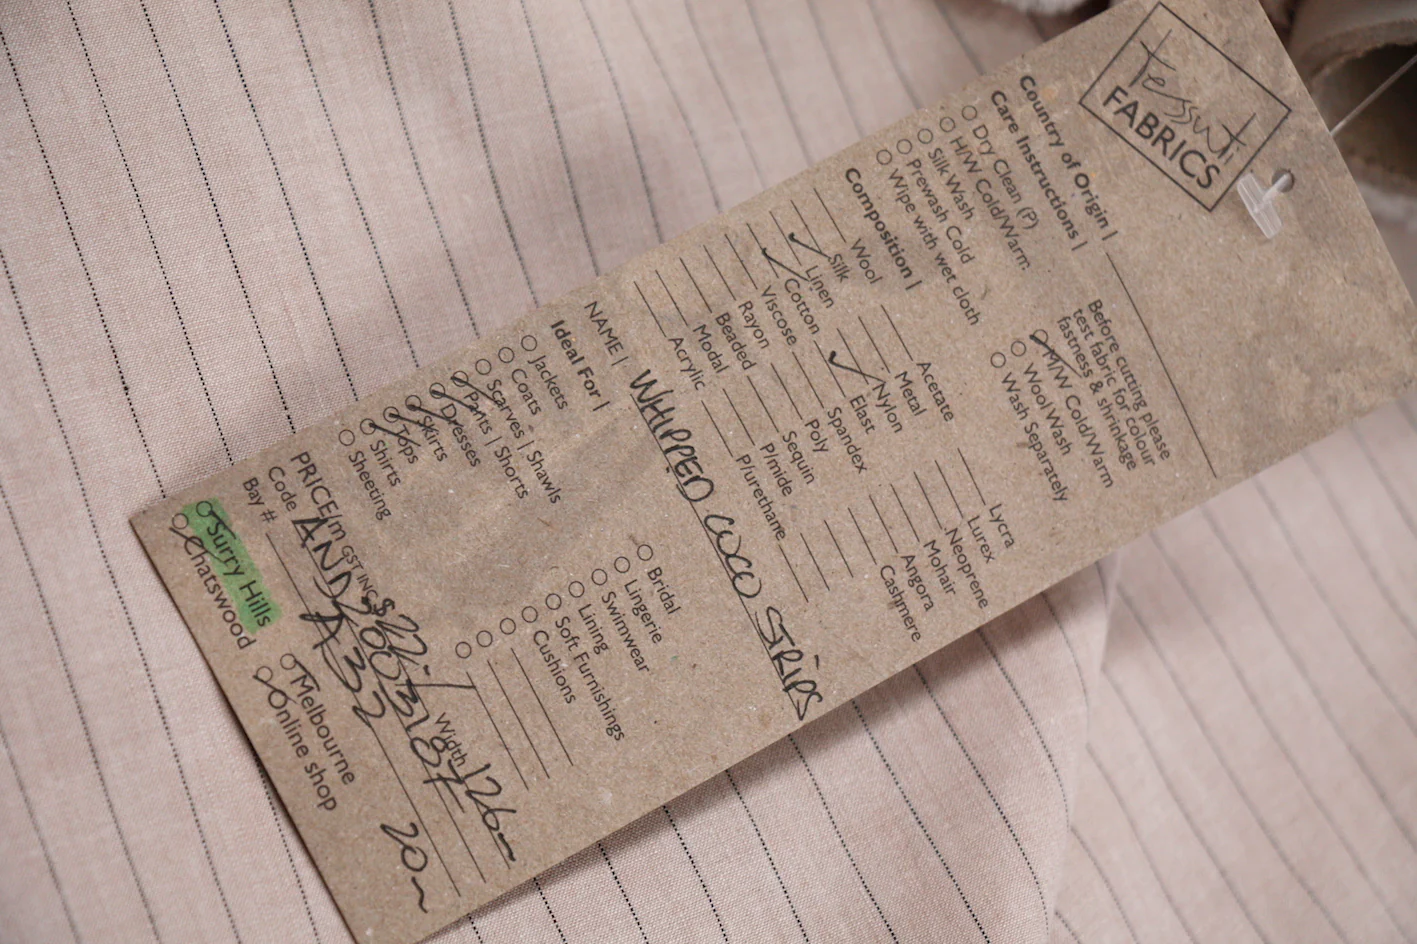 Tessuti
FABRICS
Country of Origin |
Care Instructions |
Dry Clean (P)
H/W Cold/Warm:
Silk Wash
Prewash Cold
Wipe with wet cloth
Before cutting please
test fabric for colour
fastness & shrinkage
M/W Cold/Warm
Wool Wash
Wash Separately
Composition |
Wool
Silk
Linen
Cotton
Viscose
Rayon
Beaded
Modal
Acrylic
Acetate
Metal
Nylon
Elast
Spandex
Poly
Sequin
P/mide
P/urethane
Lycra
Lurex
Neoprene
Mohair
Angora
Cashmere
NAME | WHIPPED COCO STRIPS
Ideal For |
Jackets
Coats
Scarves | Shawls
Pants | Shorts
Dresses
Skirts
Tops
Shirts
Sheeting
Bridal
Lingerie
Swimwear
Lining
Soft Furnishings
Cushions
PRICE/m GST INC. Width 126
Code
Bay # A32
Surry Hills
Chatswood
Melbourne
Online shop
20m